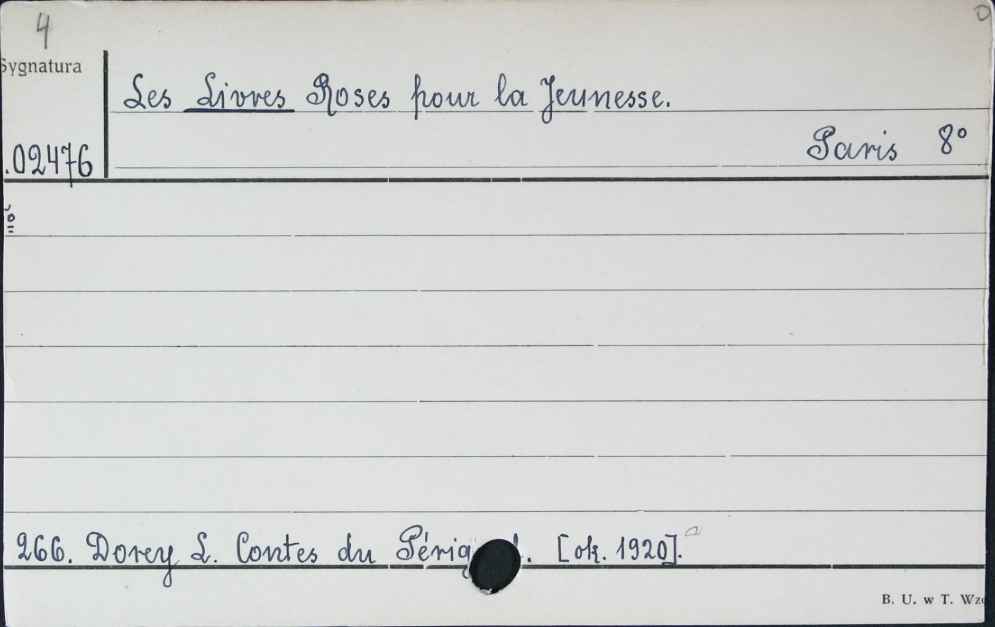 4
Sygnatura
Les Livres Roses pour la Jeunesse.
Paris 8°
.02476
266. Dorey L. Contes du Périg . [ok. 1920].
B. U. w T. Wz